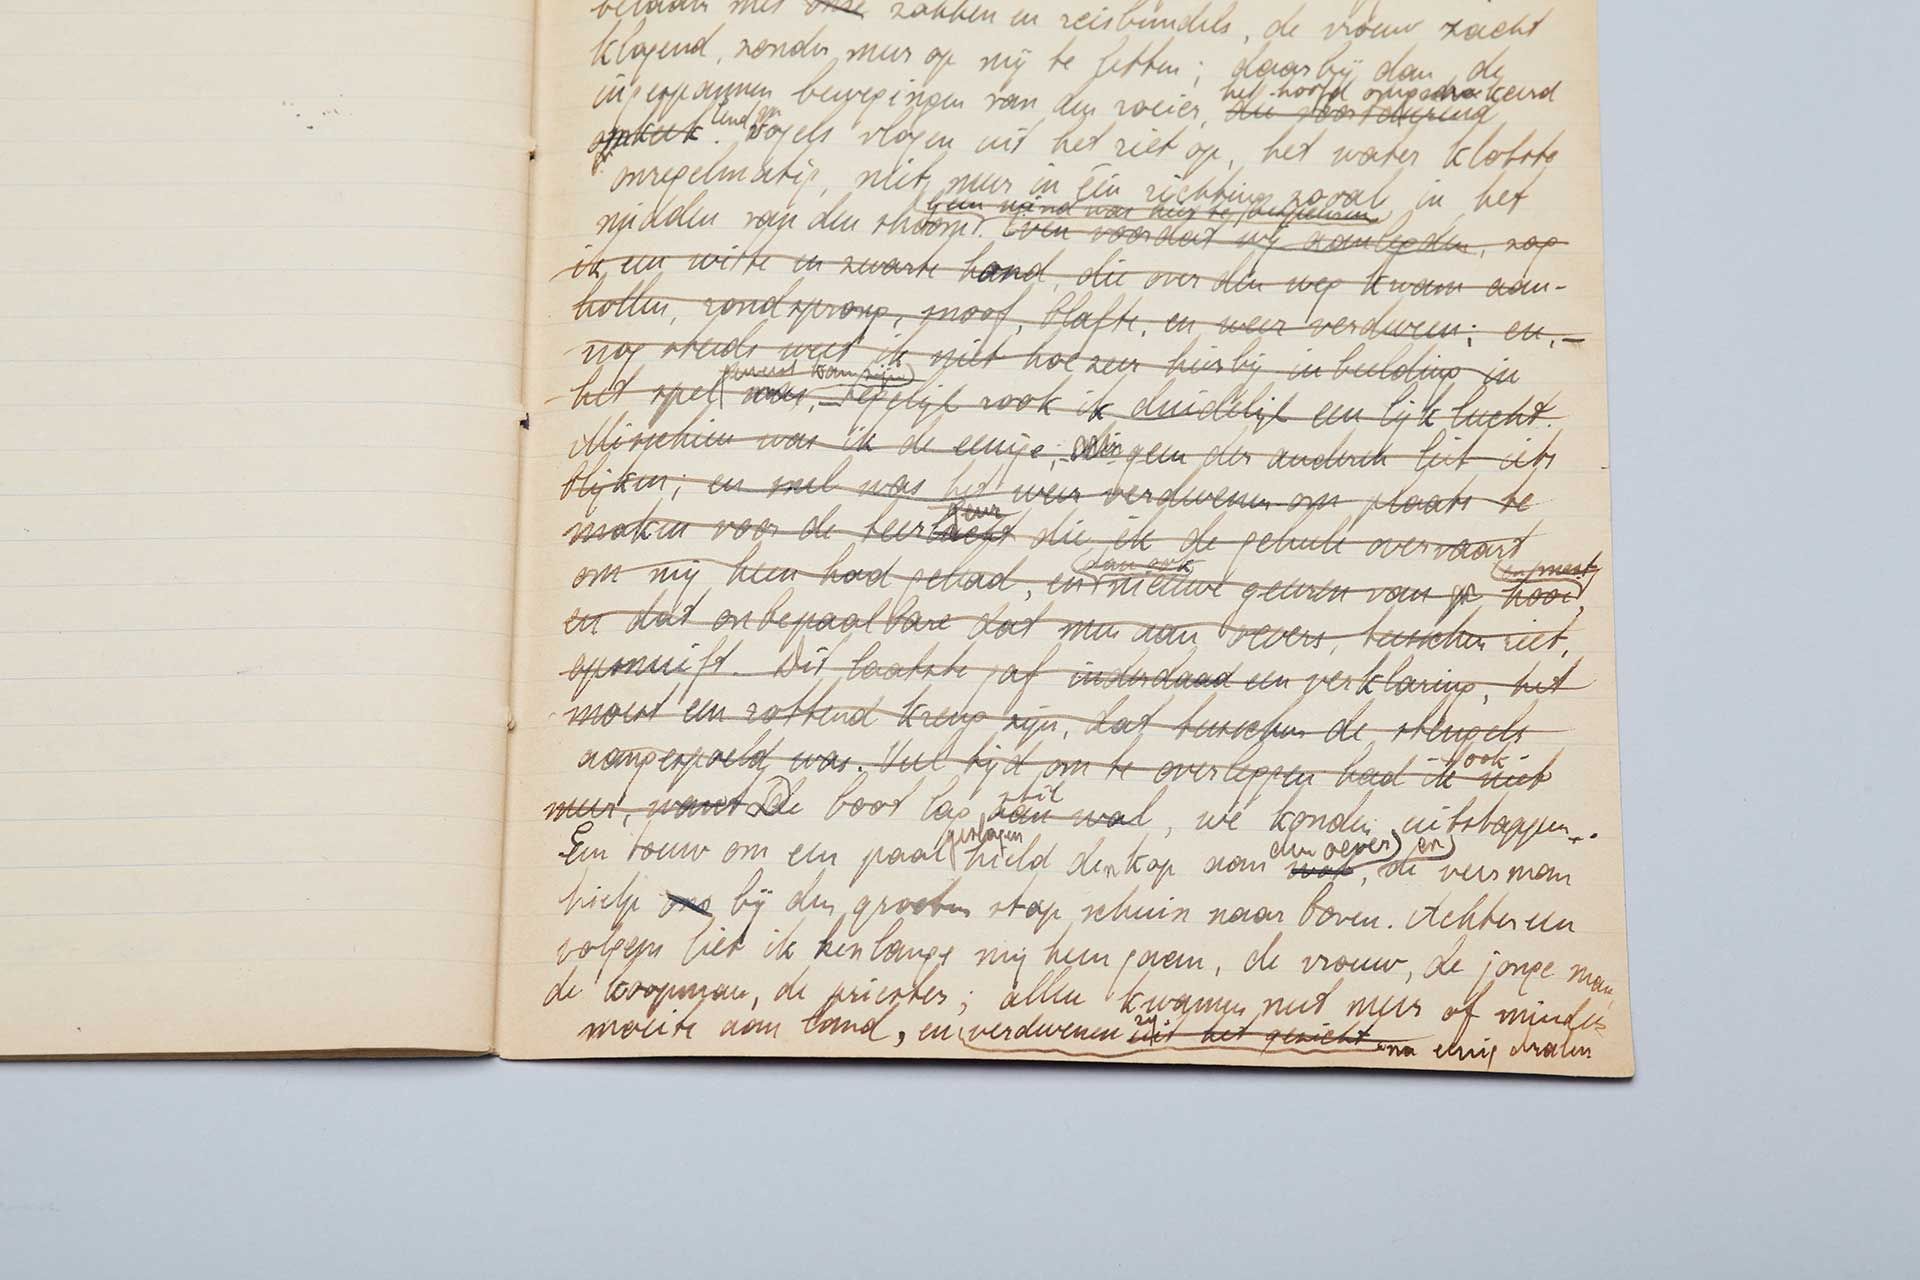 beladen met onze zakken en reisbundels, de vrouw zacht
klagend, zonder meer op mij te letten; daarbij dan de
ingespannen bewegingen van den roeier,
het hoofd omgekeerd
die voortdurend
omkeek. Eend vogels vlogen uit het riet op, het water klotste
onregelmatig, niet meer in één richting zooals in het
geen wind was hier te bespeuren
midden van den stroom. Even voordat wij aanlegden, zag
ik een witte en zwarte hond, die over den weg kwam aan-
hollen, rondsprong, snoof, blafte, en weer verdween; en, –
nog steeds weet ik niet hoezeer hierbij inbeelding in
geweest kan zijn
het spel was, – tegelijk rook ik duidelijk een lijklucht.
Misschien was ik de eenige, geen der anderen liet iets
blijken; en snel was het weer verdwenen om plaats te
geur
maken voor de teerlucht die ik de geheele overvaart
dan ook
en mest
om mij heen had gehad, en nieuwe geuren van hooi,
en dat onbepaalbare dat men aan oevers, tusschen riet,
opsnuift. Dit laatste gaf inderdaad een verklaring, het
moest een rottend kreng zijn, dat tusschen de stengels
aangespoeld was. Veel tijd om te overleggen had ik ook niet
stil
meer, want De boot lag aan wal, we konden uitstappen..
geslagen
den oever en
Een touw om een paal hield den kop aan wal, de veerman
hielp ons bij den grooten stap schuin naar boven. Achtereen
volgens liet ik hen langs mij heen gaan, de vrouw, de jonge man,
de koopman, de priester; allen kwamen met meer of minder
moeite aan land, en verdwenen zij uit het gezicht na eenig dralen